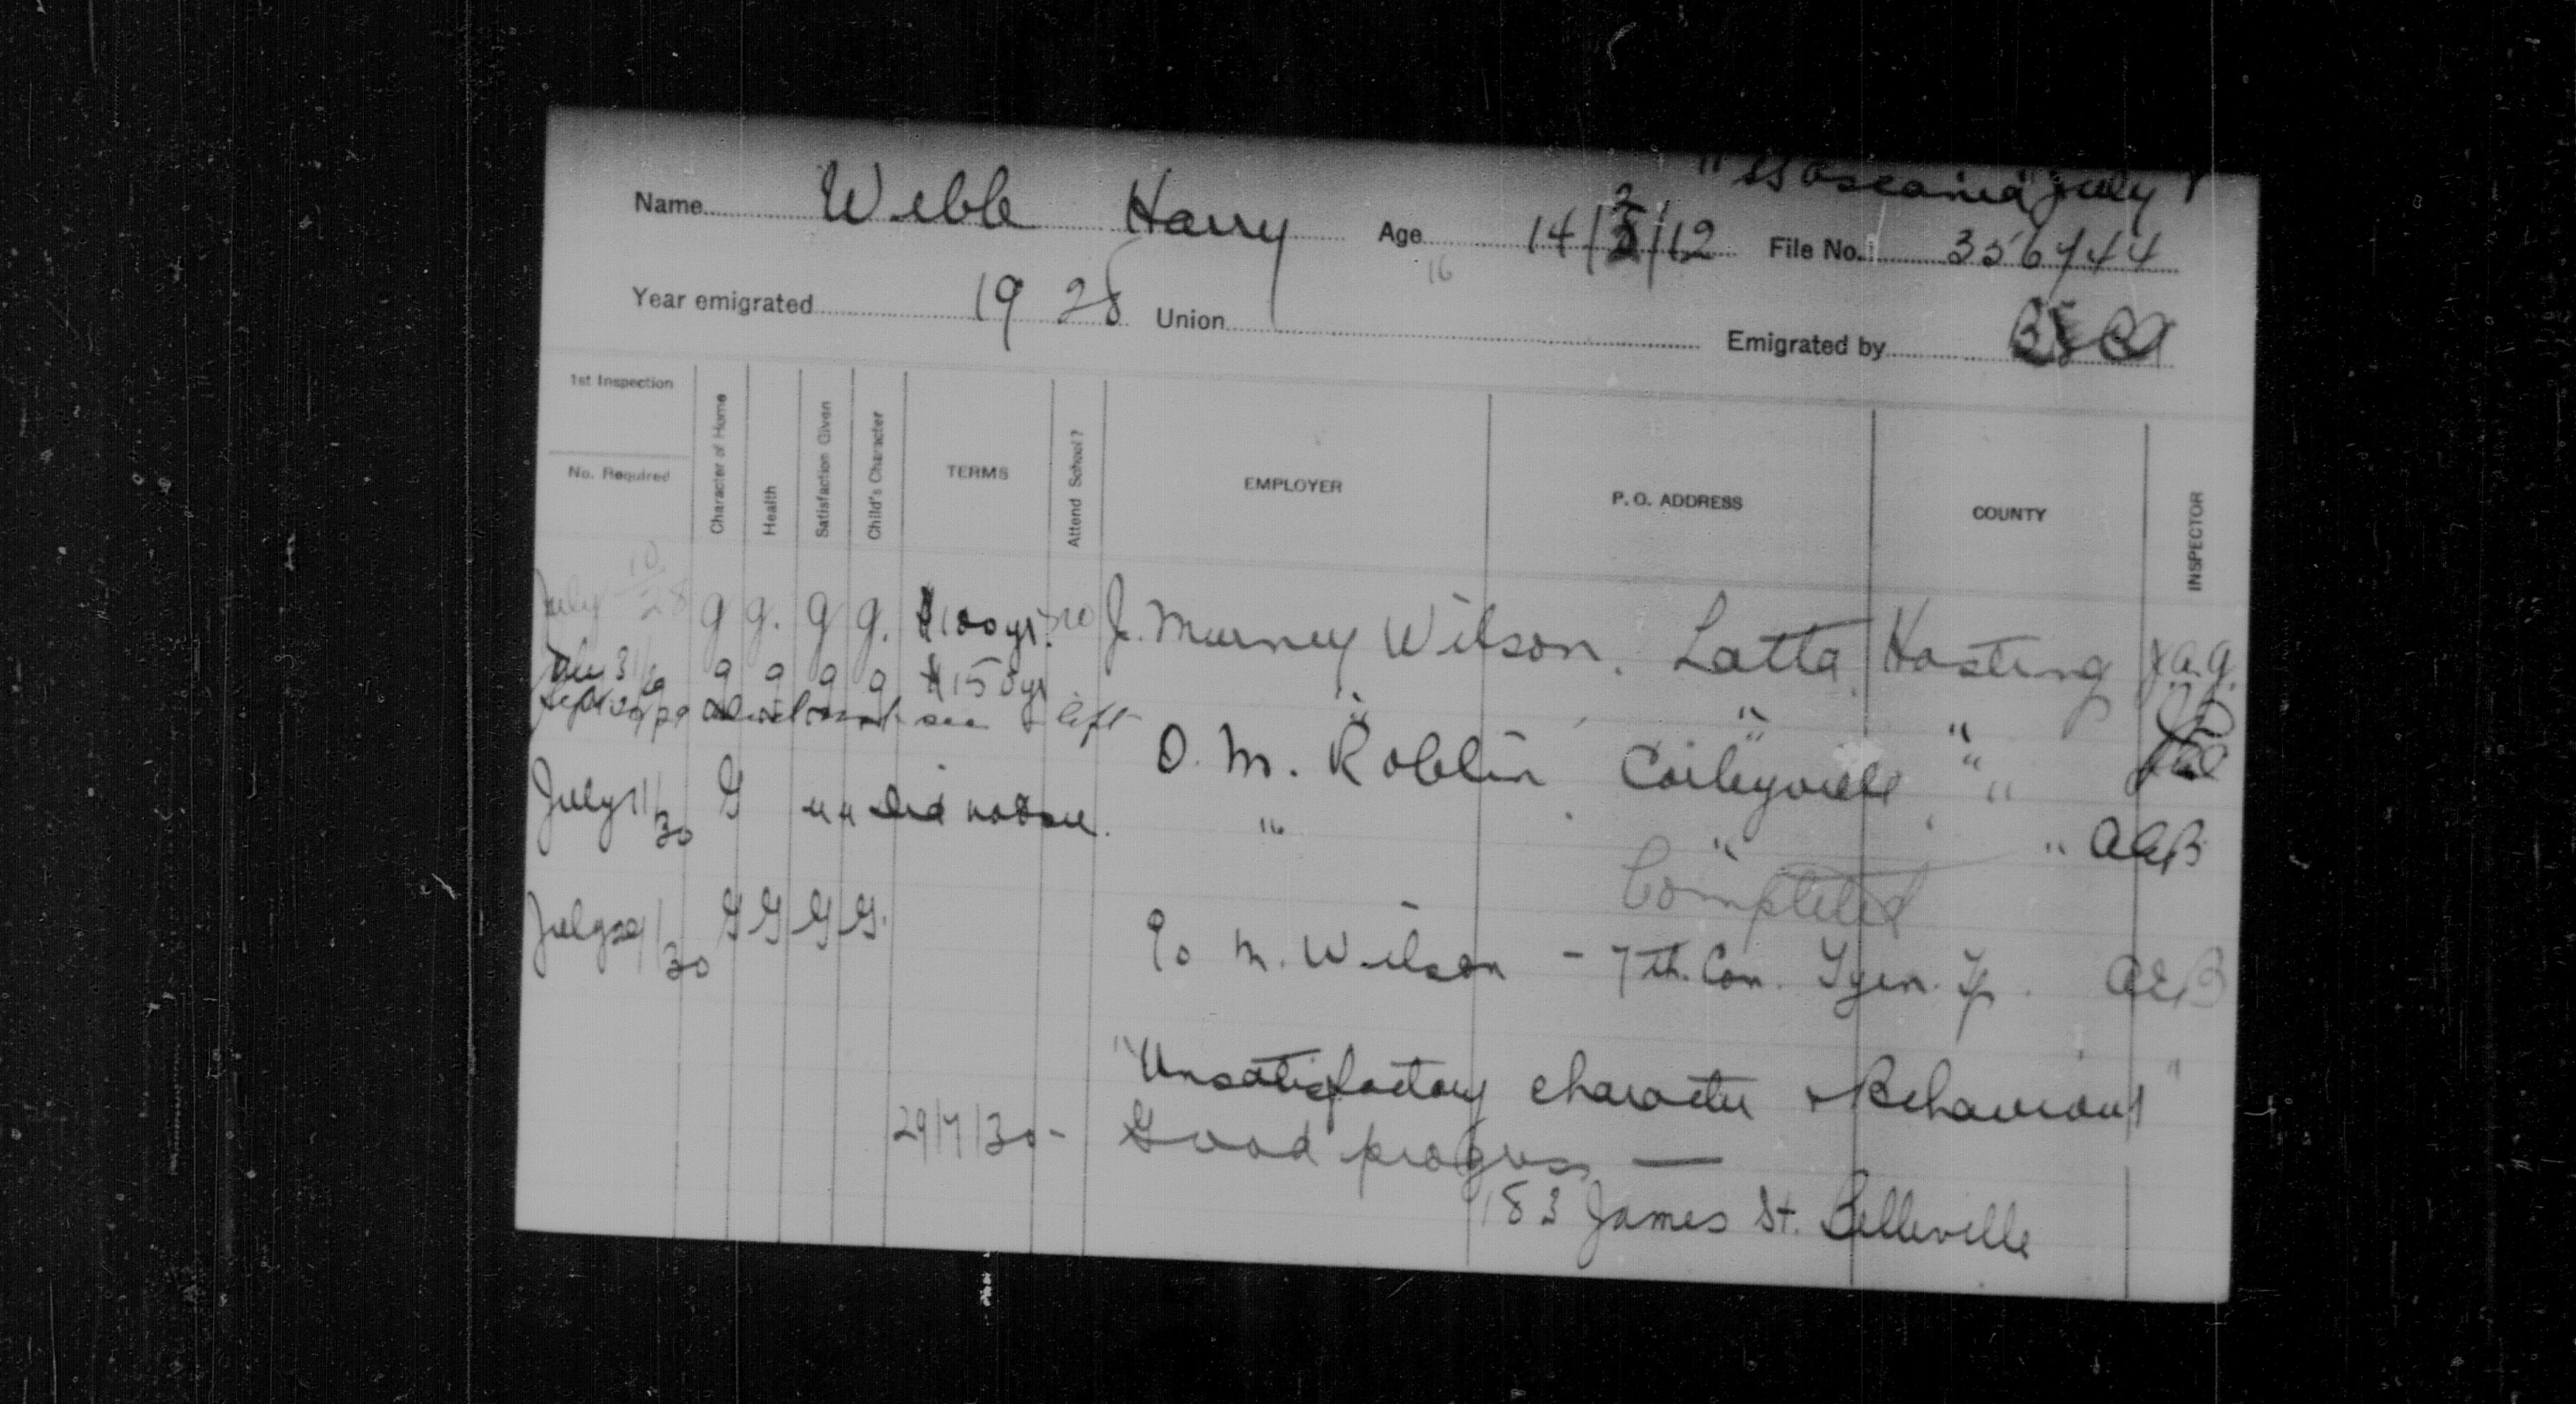 "SS Ascania" July
Name Webb Harry Age 14/2/12 File No. 356744
16
Year emigrated 1928 Union Emigrated by
1st Inspection
No. Required
Character of Home
Health
Satisfaction Given
Child's Character
TERMS
Attend School?
EMPLOYER
P. O. ADDRESS
COUNTY
INSPECTOR
July 10/28 g g. g g. $100 yr. no J. Murney Wilson. Latta Hasting J.A.G.
31/ g g g g $150 yr " " "
Sept did not see left O. M. Roblin " "
July 11/30 G did not see. " " " AEB
Completed
July 29/30 G G G G. c/o M. Wilson - 7th. Con. Tyen. Tp. AEB
"Unsatisfactory character & Behaviour"
29/7/30 - Good progress —
183 James St. Belleville